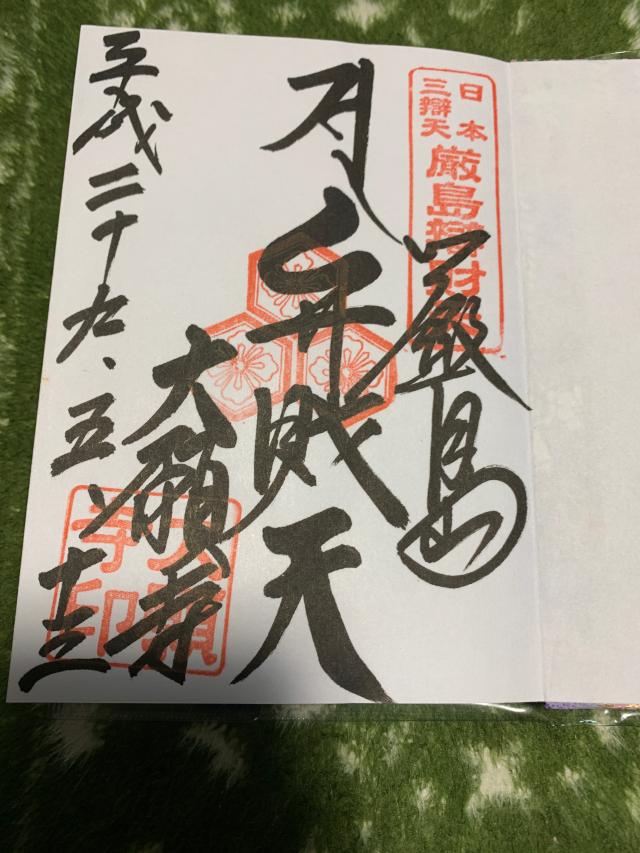 日本
三辯天
厳島辯財
嚴島
弁財天
大願寺
大願寺印
平成二十九、五、十三